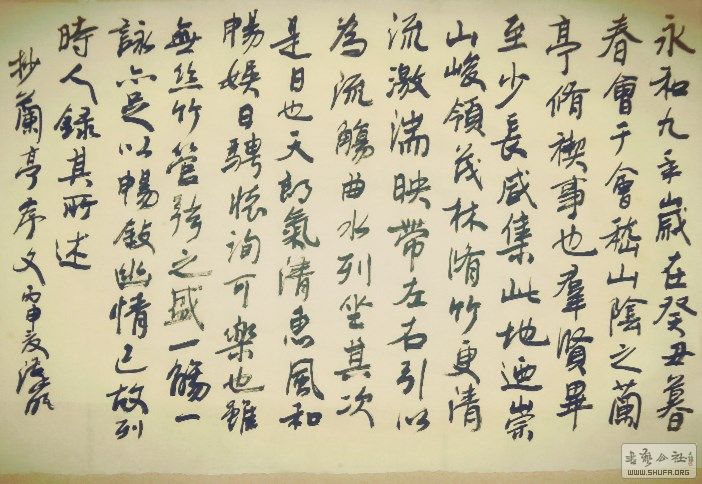 永和九年歲在癸丑暮
春會于會嵇山陰之蘭
亭脩禊事也羣賢畢
至少長咸集此地迺崇
山峻領茂林脩竹更清
流激湍映帶左右引以
為流觴曲水列坐其次
是日也天朗氣清惠風和
暢娛目騁懷洵可樂也雖
無絲竹管弦之盛一觴一
詠亦足以暢敍幽情已故列
時人錄其所述
抄蘭亭序文
书艺公社
WWW.SHUFA.ORG